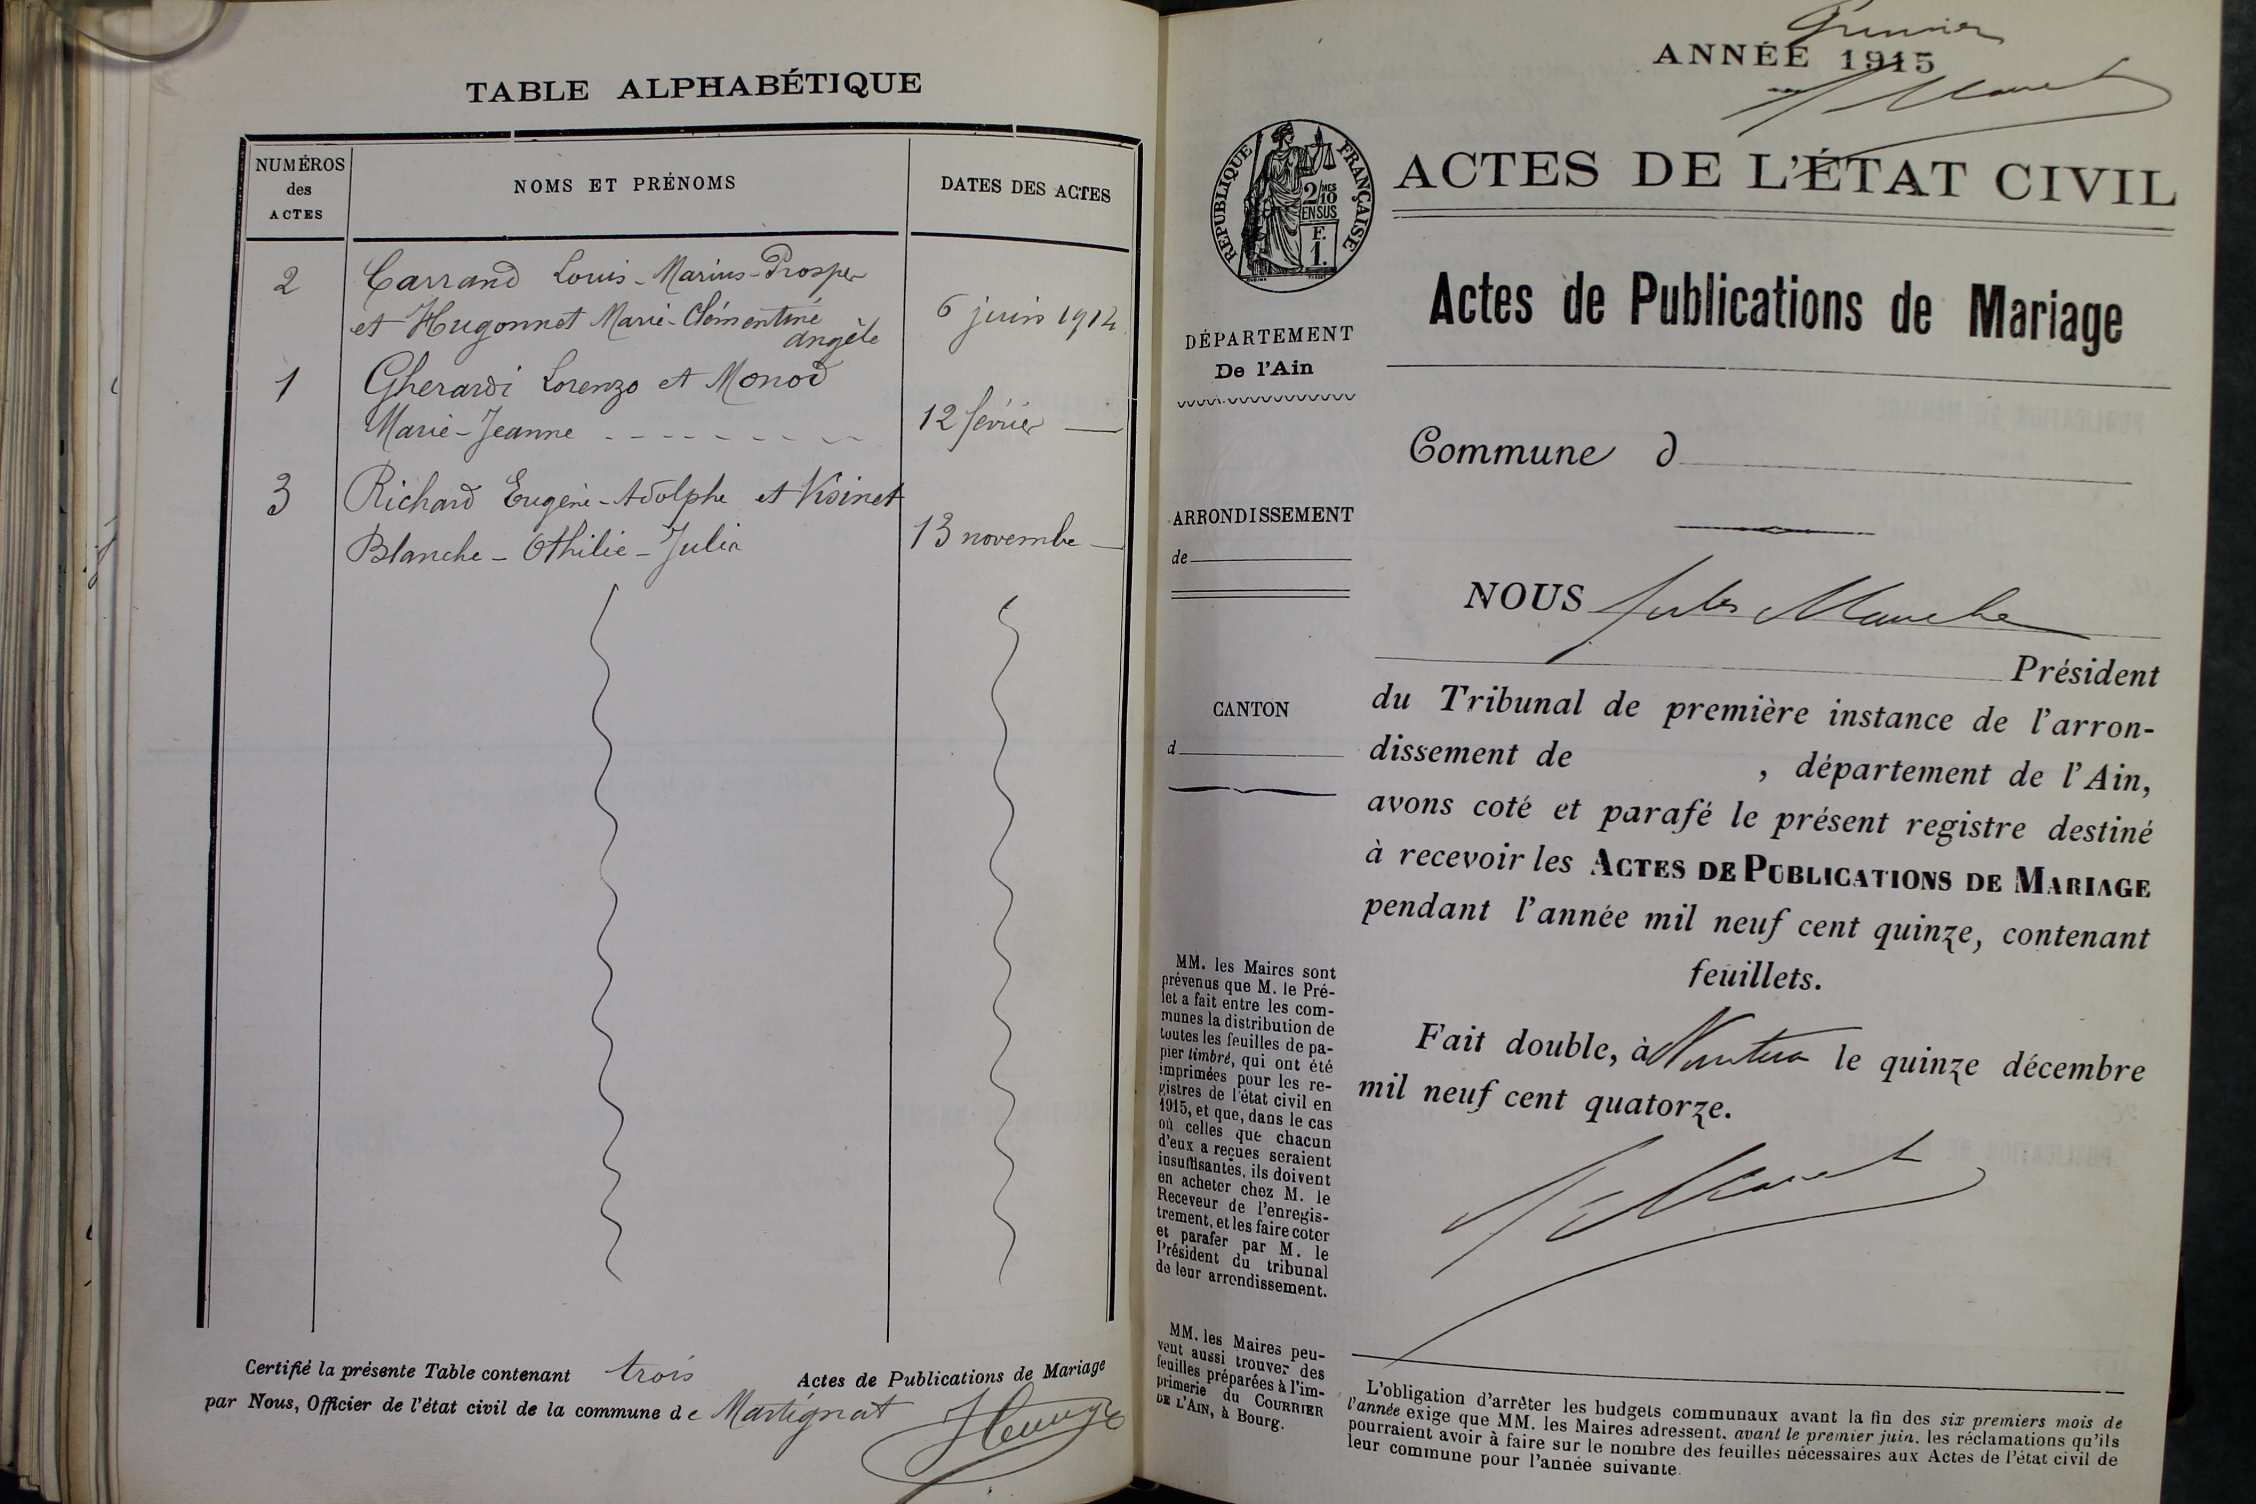 TABLE ALPHABÉTIQUE
NUMÉROS
des
ACTES
NOMS ET PRÉNOMS
DATES DES ACTES
2
Carrand Louis-Marius-Prosper
et Hugonnet Marie-Clémentine
Angèle
6 juin 1914
1
Gherardi Lorenzo et Monod
Marie-Jeanne
12 février —
3
Richard Eugène-Adolphe et
Blanche-Othilie-Julia
13 novembre —
Certifié la présente Table contenant trois Actes de Publications de Mariage
par Nous, Officier de l'état civil de la commune de Martignat
Premier
ANNÉE 1915
RÉPUBLIQUE FRANÇAISE
2/10MES
EN SUS
F.
1.
ACTES DE L'ÉTAT CIVIL
Actes de Publications de Mariage
DÉPARTEMENT
De l'Ain
Commune d
ARRONDISSEMENT
de
CANTON
d
NOUS Jules
Président
du Tribunal de première instance de l'arron-
dissement de , département de l'Ain,
avons coté et parafé le présent registre destiné
à recevoir les ACTES DE PUBLICATIONS DE MARIAGE
pendant l'année mil neuf cent quinze, contenant
feuillets.
Fait double, à Nantua le quinze décembre
mil neuf cent quatorze.
MM. les Maires sont
prévenus que M. le Pré-
fet a fait entre les com-
munes la distribution de
toutes les feuilles de pa-
pier timbré, qui ont été
imprimées pour les re-
gistres de l'état civil en
1915, et que, dans le cas
où celles que chacun
d'eux a reçues seraient
insuffisantes, ils doivent
en acheter chez M. le
Receveur de l'enregis-
trement, et les faire coter
et parafer par M. le
Président du tribunal
de leur arrondissement.
MM. les Maires peu-
vent aussi trouver des
feuilles préparées à l'im-
primerie du COURRIER
DE L'AIN, à Bourg.
L'obligation d'arrêter les budgets communaux avant la fin des six premiers mois de
l'année exige que MM. les Maires adressent, avant le premier juin, les réclamations qu'ils
pourraient avoir à faire sur le nombre des feuilles nécessaires aux Actes de l'état civil de
leur commune pour l'année suivante.